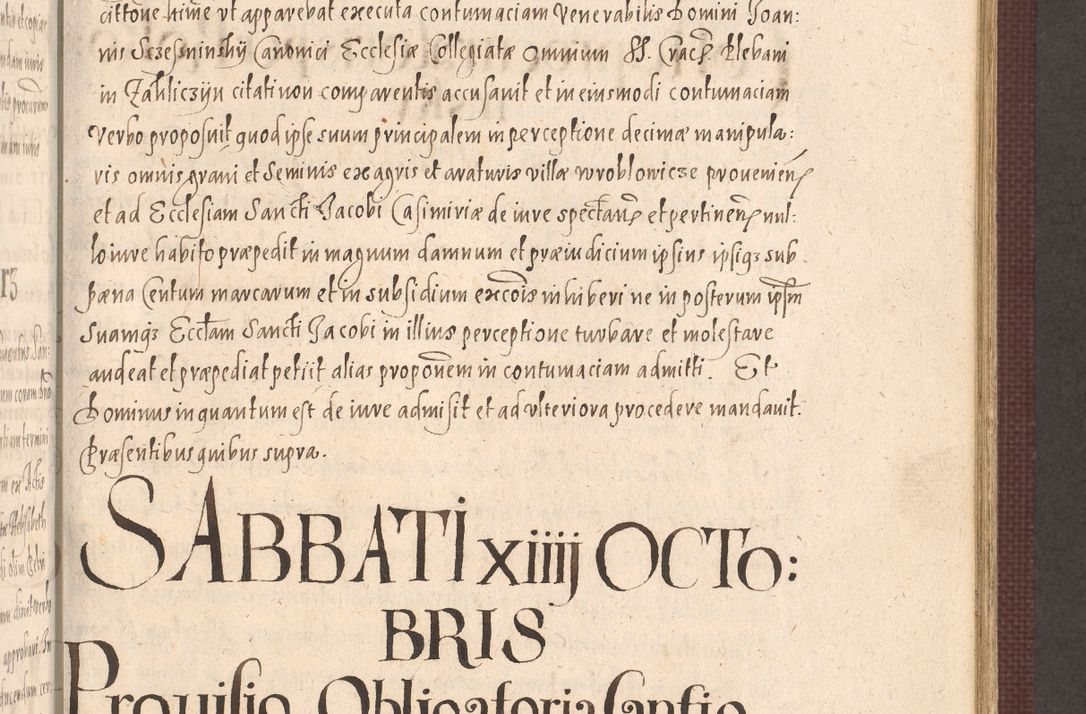 cittõne hinc ut apparebat executa contumaciam Venerabilis Domini Joan:
nis Sczesninskij Canonici Ecclesiæ Collegiatæ Omnium SS. Crac: Plebani
in citati non comparentis accusavit et in eiusmodi contumaciam
verbo proposuit quod ipse suum principalem in perceptione decimæ manipula:
ris omnis grani et Seminis ex agris et araturis villæ wroblowicze provenien:
et ad Ecclesiam Sancti Jacobi Casimiriæ de iure spectañ: et pertineñ: nul:
lo iure habito præpedit in magnum damnum et præiudicium ipsius ipsiq3 sub
pæna Centum marcarum et in subsidium excõis inhiberi ne in posterum ipsm̃
Suamq3 Eccłam Sancti Jacobi in illius perceptione turbare et molestare
audeat et præpediat petiit alias proponẽm in contumaciam admitti. Et
Dominus in quantum est de iure admisit et ad ulteriora procedere mandavit.
Præsentibus quibus supra.
SABBATI xiiij OCTO:
BRIS
Provisio Obligatoria Cantio